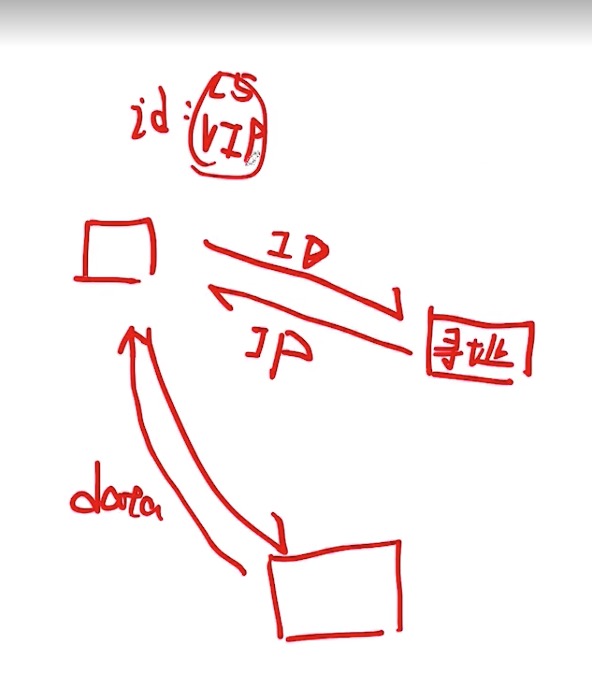 id:
CS
VIP
ID
IP
寻址
data